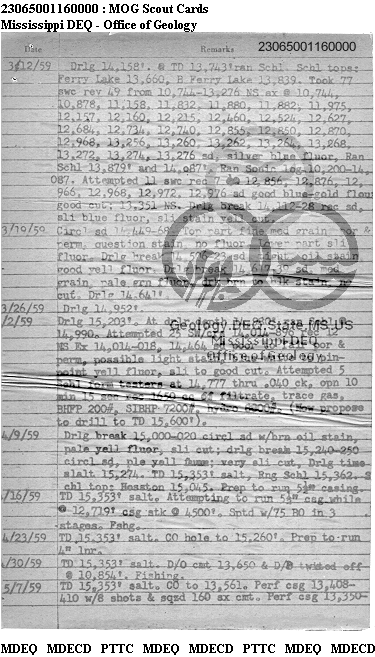 23065001160000 : MOG Scout Cards
Mississippi DEQ - Office of Geology
Date Remarks 23065001160000
3/12/59 Drlg 14,158'. @ TD 13,743' ran Schl. Schl tops:
Ferry Lake 13,660, B Ferry Lake 13,839. Took 77
swc rev 49 from 10,744-13,276 NS ex @ 10,744,
10,878, 11,158, 11,832, 11,880, 11,882, 11,975,
12,157, 12,160, 12,215, 12,460, 12,524, 12,627,
12,684, 12,734, 12,740, 12,855, 12,850, 12,870,
12,968, 13,256, 13,260, 13,262, 13,264, 13,268,
13,272, 13,274, 13,276 sd, silver blue fluor, Ran
Schl 13,879' and 14,087'. Ran Sonic log 10,200-14,
087. Attempted 11 swc rec 7 @ 12,856, 12,876, 12,
966, 12,968, 12,972, 12,976 sd good blue-gold flour
good cut, 13,351 NS. Drlg break 14,112-28 rec sd,
sli blue fluor, sli stain yell cut.
3/19/59 Circl sd 14,449-68, for part fine med grain, por &
perm, question stain, no fluor, lower part sli
fluor. Drlg break 14,508-23 sd light, oil stain,
good yell fluor. Drlg break 14,619-39 sd, med
grain, pale grn fluor, stain, no
cut. Drlg 14,641'.
3/26/59 Drlg 14,952'.
/2/59 Drlg 15,203'. At
14,990. Attempted 24
NS Ex 14,014-018, 14,464 por &
perm, possible light
point yell fluor, sli to good cut. Attempted 5
Schl form testers at 14,777 thru .040 ck, opn 10
min 15 sec rec 1650 cc GC filtrate, trace gas,
BHFP 200#, SIBHP 7200#, hydro 8200#. (Now propose
to drill to TD 15,600').
4/9/59 Drlg break 15,000-020 circl sd w/brn oil stain,
pale yell fluor, sli cut; drlg break 15,240-250
circl sd, ple yell fluor; very sli cut, Drlg time
slalt 15,274. TD 15,353' salt, Rng Schl 15,362. S
chl top: Hosston 15,045. Prep to run 5½" casing.
/16/59 TD 15,353' salt. Attempting to run 5½" csg while
@ -12,719' csg stk @ 4500'. Sptd w/75 BO in 3
stages. Fshg.
4/23/59 TD 15,353' salt. CO hole to 15,260'. Prep to run
4" lnr.
/30/59 TD 15,353' salt. D/O cmt 13,650 & D/P twisted off
@ 10,854'. Fishing.
5/7/59 TD 15,353' salt. CO to 13,561. Perf csg 13,408-
410 w/8 shots & sqzd 160 sx cmt. Perf csg 13,350-
Geology.DEQ.State.MS.US
Mississippi DEQ
Office of Geology
MDEQ MDECD PTTC MDEQ MDECD PTTC MDEQ MDECD PTTC MDEQ MDECD